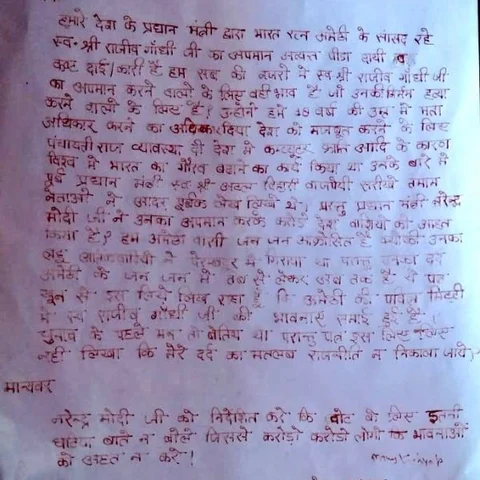 हमारे देश के प्रधान मंत्री द्वारा भारत रत्न अमेठी के सांसद रहे
स्व. श्री राजीव गांधी जी का अपमान अत्यन्त पीड़ा दायी व
कष्ट दाई/कारी है हम सब की नजरों में स्व श्री राजीव गांधी जी
का अपमान करने वालों के लिए वही भाव है जो उनकी निर्मम हत्या
करने वालों के लिए है! उन्होंने हमें 18 वर्ष की उम्र में मता
अधिकार करने का अधिकार दिया देश को मजबूत करने के लिए
पंचायती राज व्यवस्था दी देश में कम्प्यूटर क्रांति आदि के कारण
विश्व में भारत का गौरव बढ़ाने का कार्य किया था उनके बारे में
पूर्व प्रधान मंत्री स्व श्री अटल बिहारी वाजपेयी सरीखे तमाम
नेताओं ने आदर पूर्वक लेख लिखे थे! परन्तु प्रधान मंत्री नरेन्द्र
मोदी जी ने उनका अपमान करके करोड़ो देश वासियों को आहत
किया है! हम अमेठी वासी जन जन आक्रोसित है क्योंकी उनका
लहू आतंकवादियों ने पेरम्बदूर में गिराया था परन्तु उनका दर्द
अमेठी के जन जन में तब से लेकर अब तक है ये पत्र
खून से इस लिये लिख रहा हूँ कि अमेठी की पवित्र मिट्टी
में स्व राजीव गांधी जी की भावनाएं समाई हुई है!
चुनाव के पहले मन तो व्यथित था परन्तु पत्र इस लिए
नहीं लिखा कि मेरे दर्द का मतलब राजनीति न निकाला जाये!
मान्यवर
नरेन्द्र मोदी जी को निर्देशित करे कि वोट के लिए इतनी
घृणित बातें न बोले जिससे करोड़ो करोड़ो लोगों कि भावनाओं
को आहत न करे!